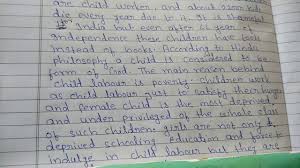 are child worker, and about 2200 kid
die every year due to it. It is shameful
India but even after 66 year of
independence their children have tools
instead of books. According to Hindu
philosophy a child is considered to be
form of God. The main reason behind
child labour is poverty - children work
as child labour just to satisfy their hunger
and female child is the most deprived
and under privileged of the whole class
of such children. girls are not only
deprived schooling education and force to
indulge in child labour but they are